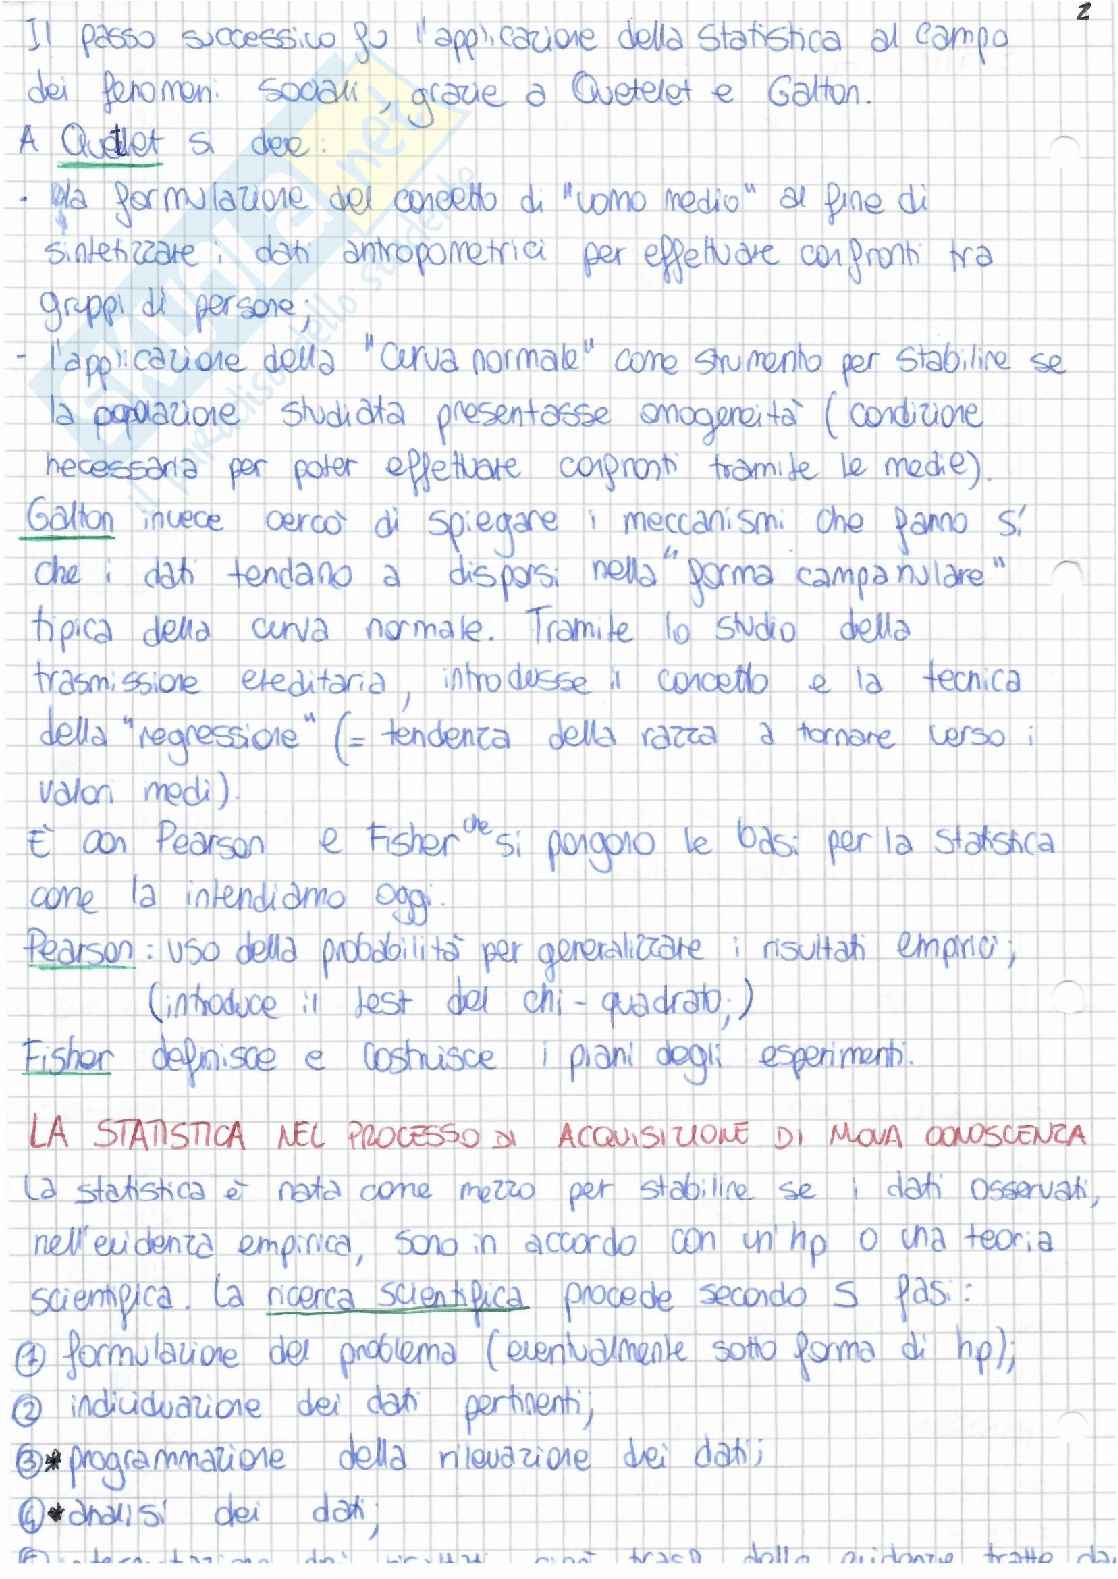 2
Il passo successivo fu l'applicazione della Statistica al Campo
dei fenomeni sociali, grazie a Quetelet e Galton.
A Quetlet si deve:
- la formulazione del concetto di "uomo medio" al fine di
sintetizzare i dati antropometrici per effettuare confronti tra
gruppi di persone;
- l'applicazione della "Curva normale" come strumento per stabilire se
la popolazione studiata presentasse omogeneità (condizione
necessaria per poter effettuare confronti tramite le medie).
Galton invece cercò di spiegare i meccanismi che fanno sì
che i dati tendano a disporsi nella "forma campanulare"
tipica della curva normale. Tramite lo studio della
trasmissione ereditaria, introdusse il concetto e la tecnica
della "regressione" (= tendenza della razza a tornare verso i
valori medi).
È con Pearson e Fisher che si pongono le basi per la statistica
come la intendiamo oggi.
Pearson: uso della probabilità per generalizzare i risultati empirici;
(introduce il test del chi-quadrato;)
Fisher definisce e costruisce i piani degli esperimenti.
LA STATISTICA NEL PROCESSO DI ACQUISIZIONE DI NUOVA CONOSCENZA
La statistica è nata come mezzo per stabilire se i dati osservati,
nell'evidenza empirica, sono in accordo con un'hp o una teoria
scientifica. La ricerca scientifica procede secondo 5 fasi:
① formulazione del problema (eventualmente sotto forma di hp);
② individuazione dei dati pertinenti;
③* programmazione della rilevazione dei dati;
④* analisi dei dati;